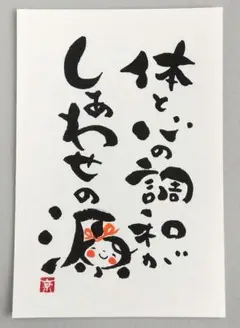 体と心の調和が
しあわせの源
京